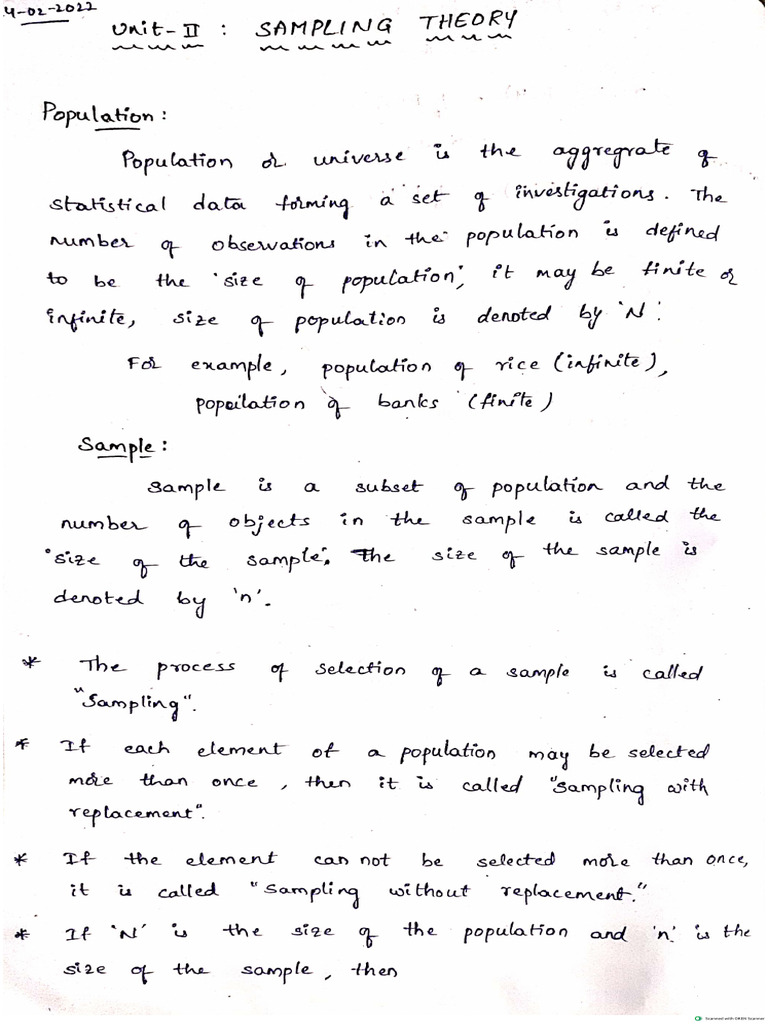 4-02-2022
Unit-II : SAMPLING THEORY
Population :
Population or universe is the aggregrate of
statistical data forming a set of investigations. The
number of observations in the population is defined
to be the 'size of population', it may be finite or
infinite, size of population is denoted by 'N'.
For example, population of rice (infinite),
popoilation of banks (finite)
Sample :
Sample is a subset of population and the
number of objects in the sample is called the
'size of the sample'. The size of the sample is
denoted by 'n'.
* The process of selection of a sample is called
"Sampling".
* If each element of a population may be selected
more than once, then it is called "Sampling with
replacement".
* If the element can not be selected more than once,
it is called "Sampling without replacement."
* If 'N' is the size of the population and 'n' is the
size of the sample, then
Scanned with OKEN Scanner